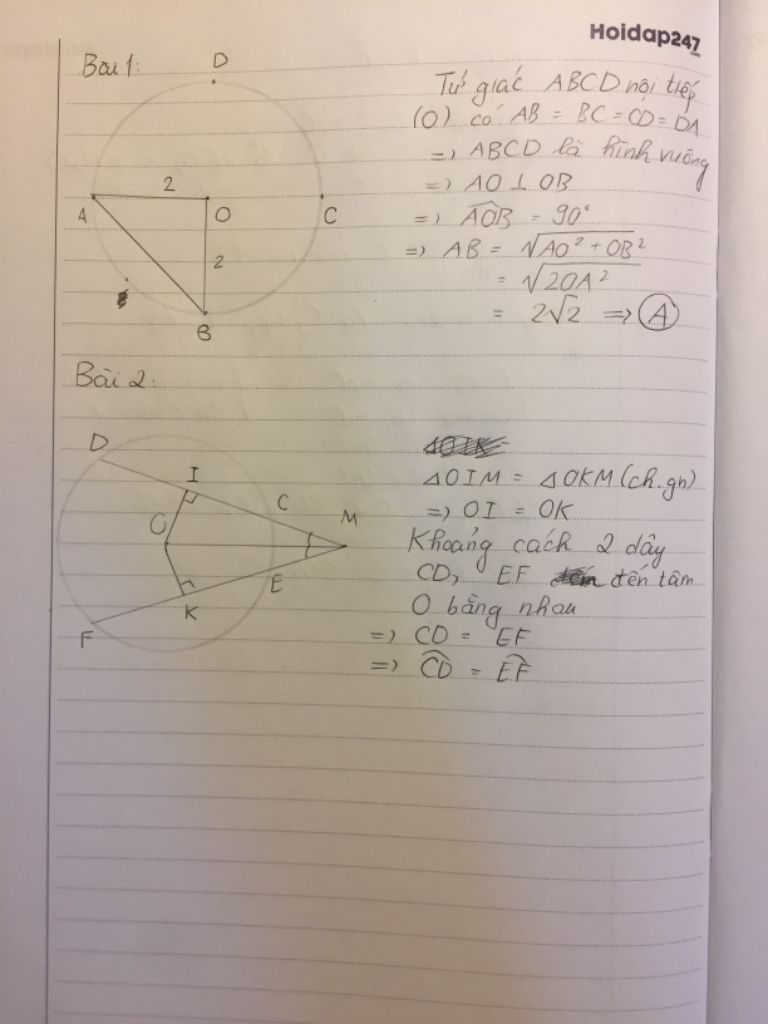 Hoidap247
Bài 1:
D
2
A
O
C
2
B
Tứ giác ABCD nội tiếp
(O) có AB = BC = CD = DA
=> ABCD là hình vuông
=> AO ⊥ OB
=> \widehat{AOB} = 90°
=> AB = √(AO² + OB²)
= √(2OA²)
= 2√2 => Ⓐ
Bài 2:
D
I
C
M
O
E
K
F
ΔOIM = ΔOKM (ch.gn)
=> OI = OK
Khoảng cách 2 dây
CD, EF đến tâm
O bằng nhau
=> CD = EF
=> \widehat{CD} = \widehat{EF}